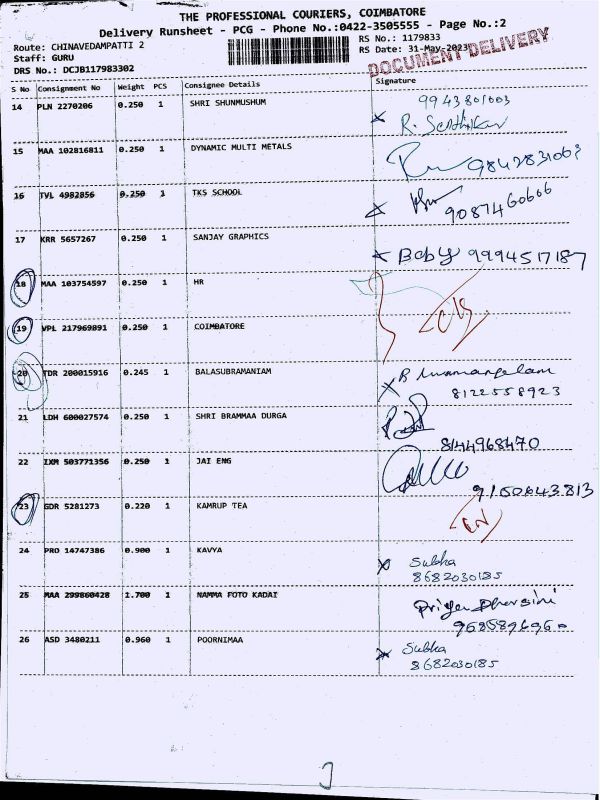 THE PROFESSIONAL COURIERS, COIMBATORE
Delivery Runsheet - PCG - Phone No.:0422-3505555 - Page No.:2
Route: CHINAVEDAMPATTI 2 RS No.: 1179833
Staff: GURU RS Date: 31-May-2023
DRS No.: DCJB117983302 DOCUMENT DELIVERY
S No Consignment No Weight PCS Consignee Details Signature
14 PLN 2270206 0.250 1 SHRI SHUNMUSHUM 9943801003
R. Senthilkumar
15 MAA 102816811 0.250 1 DYNAMIC MULTI METALS
16 TVL 4982056 0.250 1 TKS SCHOOL 9087460666
17 KRR 5657267 0.250 1 SANJAY GRAPHICS Baby 9994517187
18 MAA 103754597 0.250 1 HR
19 VPL 217969891 0.250 1 COIMBATORE
20 TDR 200015916 0.245 1 BALASUBRAMANIAM
8122558923
21 LDH 600027574 0.250 1 SHRI BRAMMAA DURGA
8144968470
22 IXM 503771356 0.250 1 JAI ENG
9150643813
23 GDR 5281273 0.220 1 KAMRUP TEA
24 PRO 14747386 0.900 1 KAVYA Subha
8682030185
25 MAA 299860428 1.700 1 NAMMA FOTO KADAI Priya Dharsini
26 ASD 3480211 0.960 1 POORNIMAA Subha
8682030185